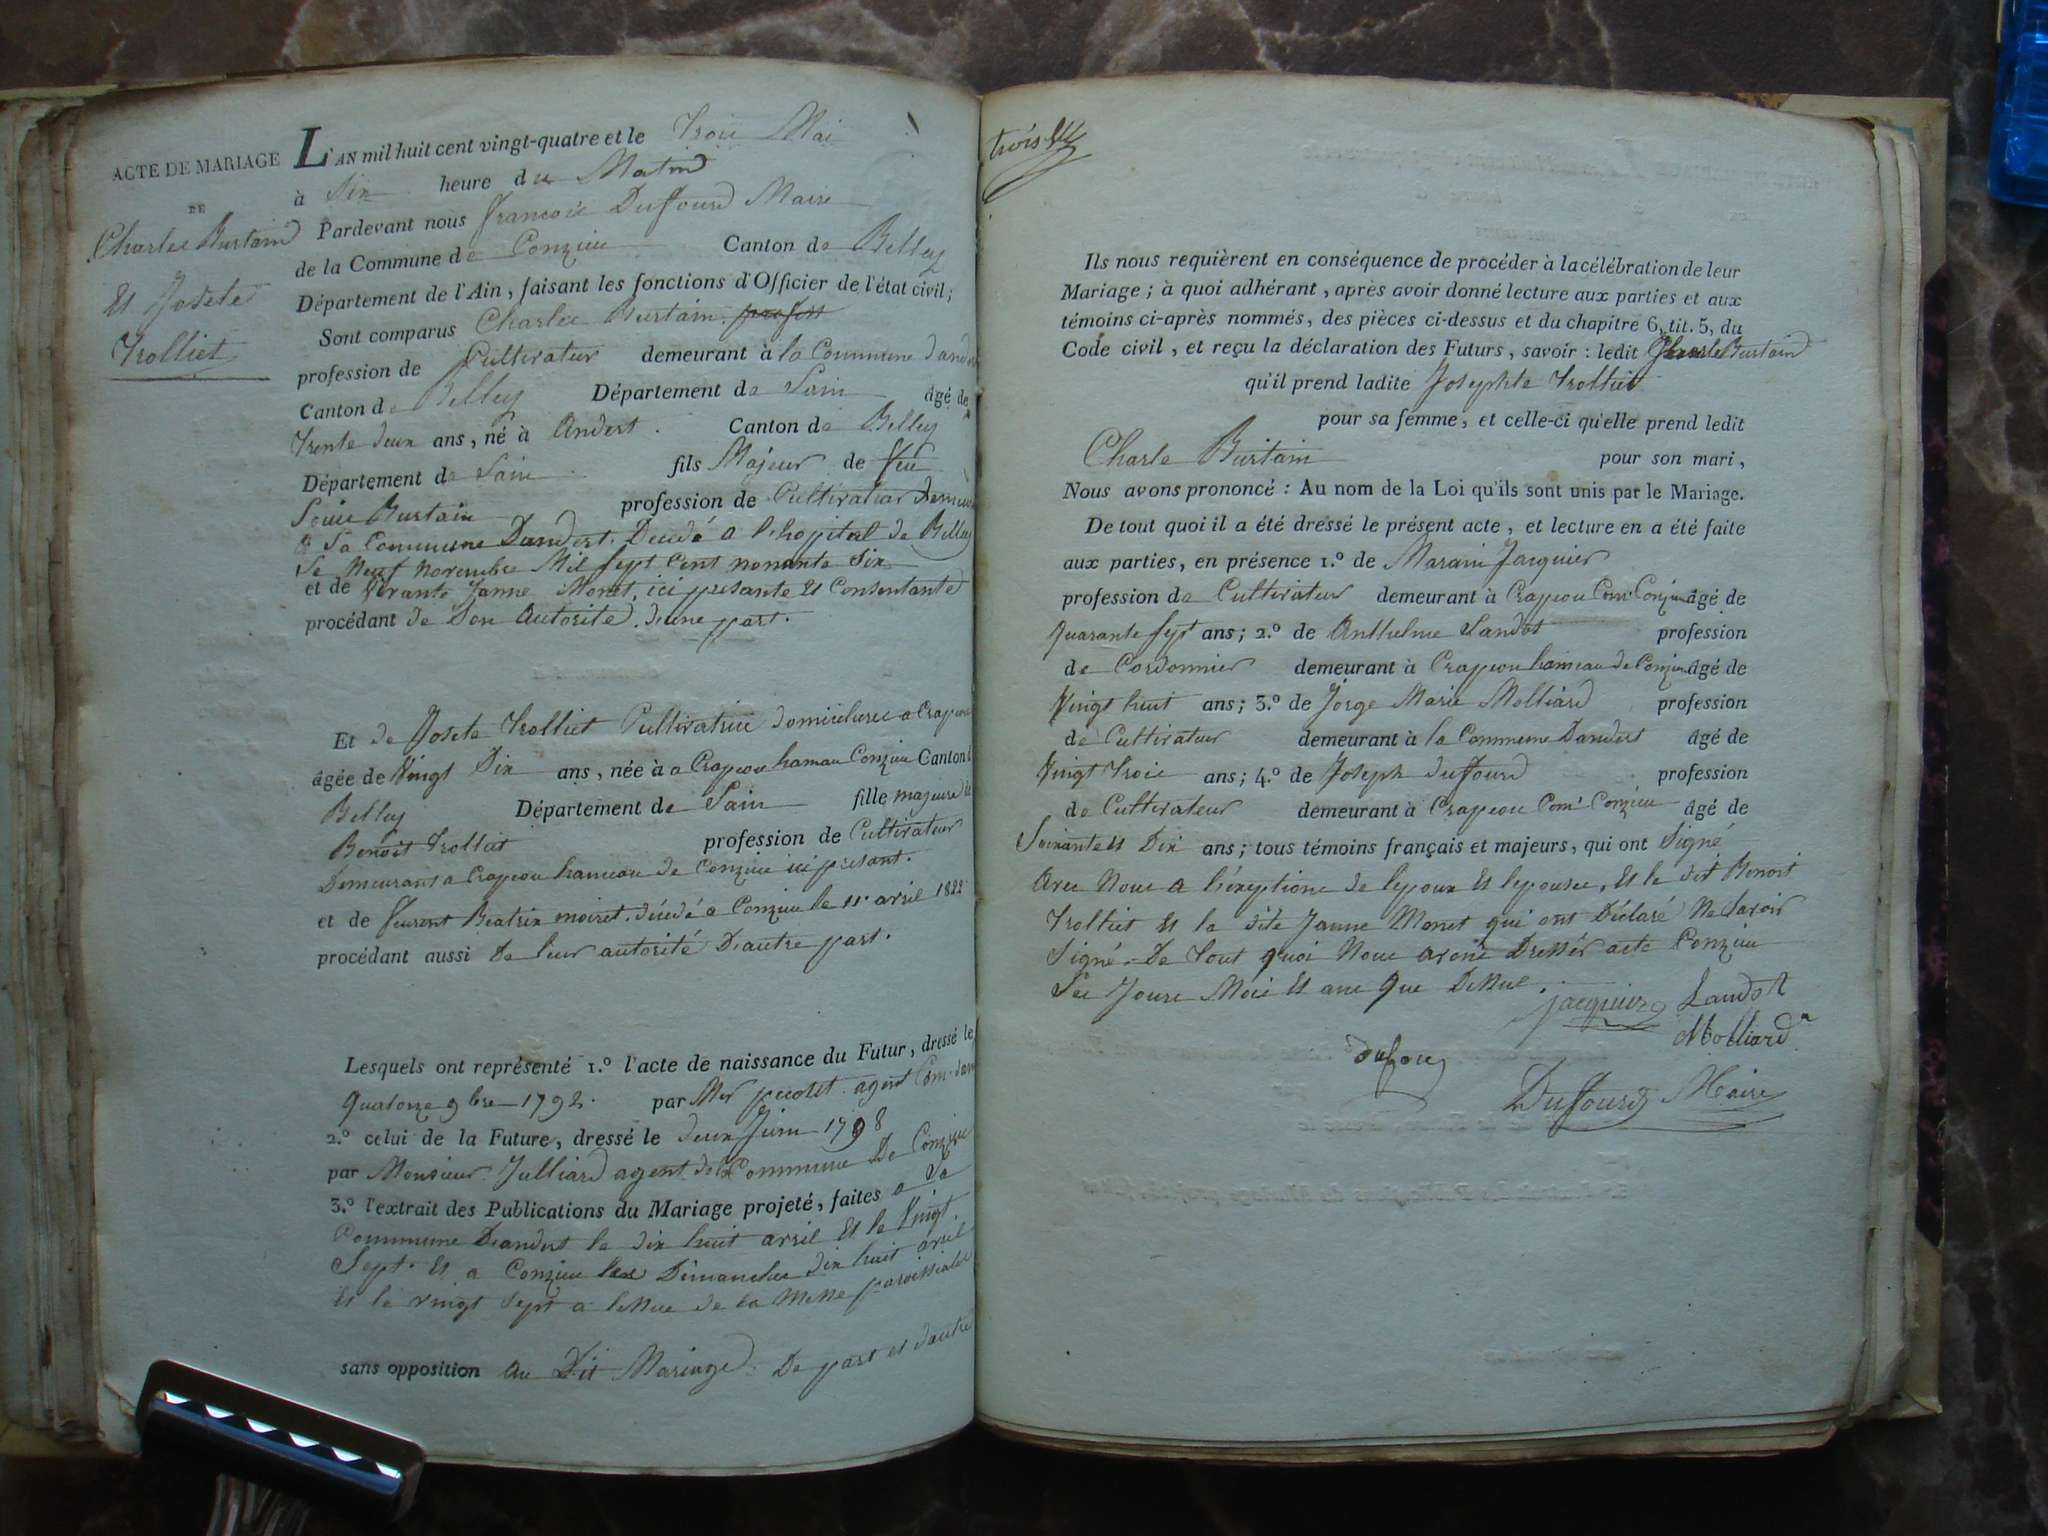 ACTE DE MARIAGE
DE
Charles Burtain
Et Josete
Trolliet
L'AN mil huit cent vingt-quatre et le Trois Mai
à Six heure du Matin
Pardevant nous François Duffourd Maire
de la Commune de Conzieu Canton de Belley
Département de l'Ain, faisant les fonctions d'Officier de l'état civil;
Sont comparus Charles Burtain
profession de Cultivateur demeurant à la Commune
Canton de Belley Département de Lain âgé de
Trente deux ans, né à Andert. Canton de Belley
Département de Lain fils Majeur de feu
Louis Burtain profession de Cultivateur
a la Commune Dandert. Decédé a l'hopital de Belley
Le neuf novembre Mil sept Cent nonante Six
et de vivante Janne Monet, ici presante Et Consentante
procédant de Son Autorité, d'une part.
Et de Josete Trolliet Cultivatrice domiciliée a Crapeou
âgée de Vingt Six ans, née à a Crapeou hamau Conzieu Canton d
Belley Département de Lain fille majeure de
Benoit Trolliet profession de Cultivateur
Demeurant a Crapeou hameau de Conzieu ici presant.
et de Beatrix moiret. décédé a Conzieu le 11 avril 1822
procédant aussi De leur autorité D'autre part.
Lesquels ont représenté 1.º l'acte de naissance du Futur, dressé le
Quatorze 9bre 1792. par Mr agent Com.
2.º celui de la Future, dressé le deux Juin 1798
par Monsieur Julliard agent de la Commune De Conzieu
3.º l'extrait des Publications du Mariage projeté, faites a La
Commune Dandert le dix huit avril Et le Vingt
Sept. Et a Conzieu les Dimanches dix huit avril
Et le vingt Sept a lessue de la Messe paroissiale
sans opposition au Dit Mariage. De part et d'autre
trois
Ils nous requièrent en conséquence de procéder à la célébration de leur
Mariage; à quoi adhérant, après avoir donné lecture aux parties et aux
témoins ci-après nommés, des pièces ci-dessus et du chapitre 6, tit. 5, du
Code civil, et reçu la déclaration des Futurs, savoir: ledit Charle Burtain
qu'il prend ladite Josephte Trolliet
pour sa femme, et celle-ci qu'elle prend ledit
Charle Burtain pour son mari,
Nous avons prononcé: Au nom de la Loi qu'ils sont unis par le Mariage.
De tout quoi il a été dressé le présent acte, et lecture en a été faite
aux parties, en présence 1.º de Marain Jacquier
profession de Cultivateur demeurant à Crapeou Com. Conzieu âgé de
Quarante sept ans; 2.º de Anthelme Landot profession
de Cordonnier demeurant à Crapeou hameau de Conzieu âgé de
Vingt huit ans; 3.º de Jorge Marie Molliard profession
de Cultivateur demeurant à la Commune Dandert âgé de
Vingt Trois ans; 4.º de Joseph duffourd profession
de Cultivateur demeurant à Crapeou Com. Conzieu âgé de
Soixante Et Dix ans; tous témoins français et majeurs, qui ont Signé
Avec Nous a l'exeptione de lepoux Et lepousee, Et le dit Benoit
Trolliet Et la dite Janne Monet qui ont Déclaré Ne Savoir
Signé. De Tout quoi Nous avons Dressér acte Conzieu
Les Jours Mois Et ans Que Dessus.
jacquier Landot
Molliard
dufour
Duffourd Maire